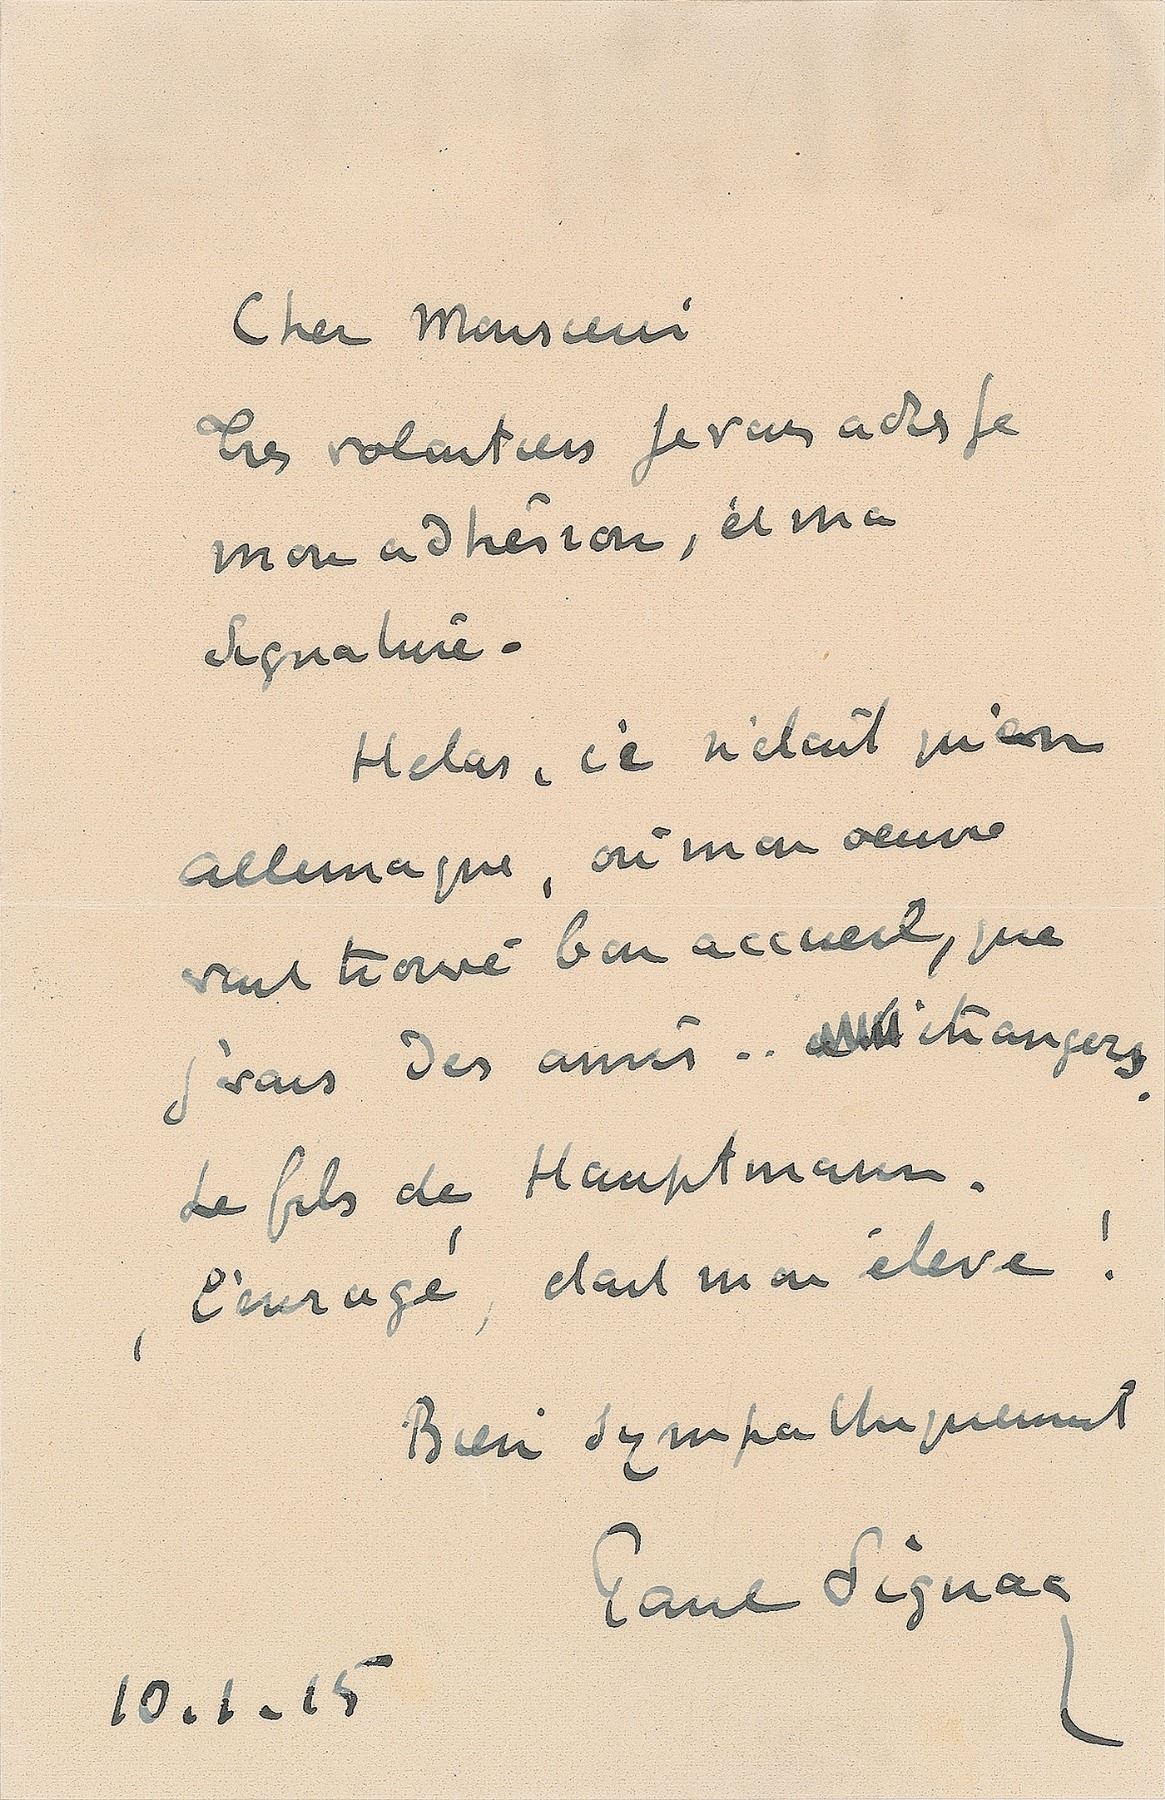 Cher Monsieur
Très volontiers je vous adresse
mon adhésion, et ma
signature.
Hélas, ce n'était qu'en
Allemagne, où mon oeuvre
trouvé bon accueil, que
j'avais des amis .. étrangers.
Le fils de Hauptmann.
l'enragé, était mon élève !
Bien sympathiquement
Paul Signac
10.1.15